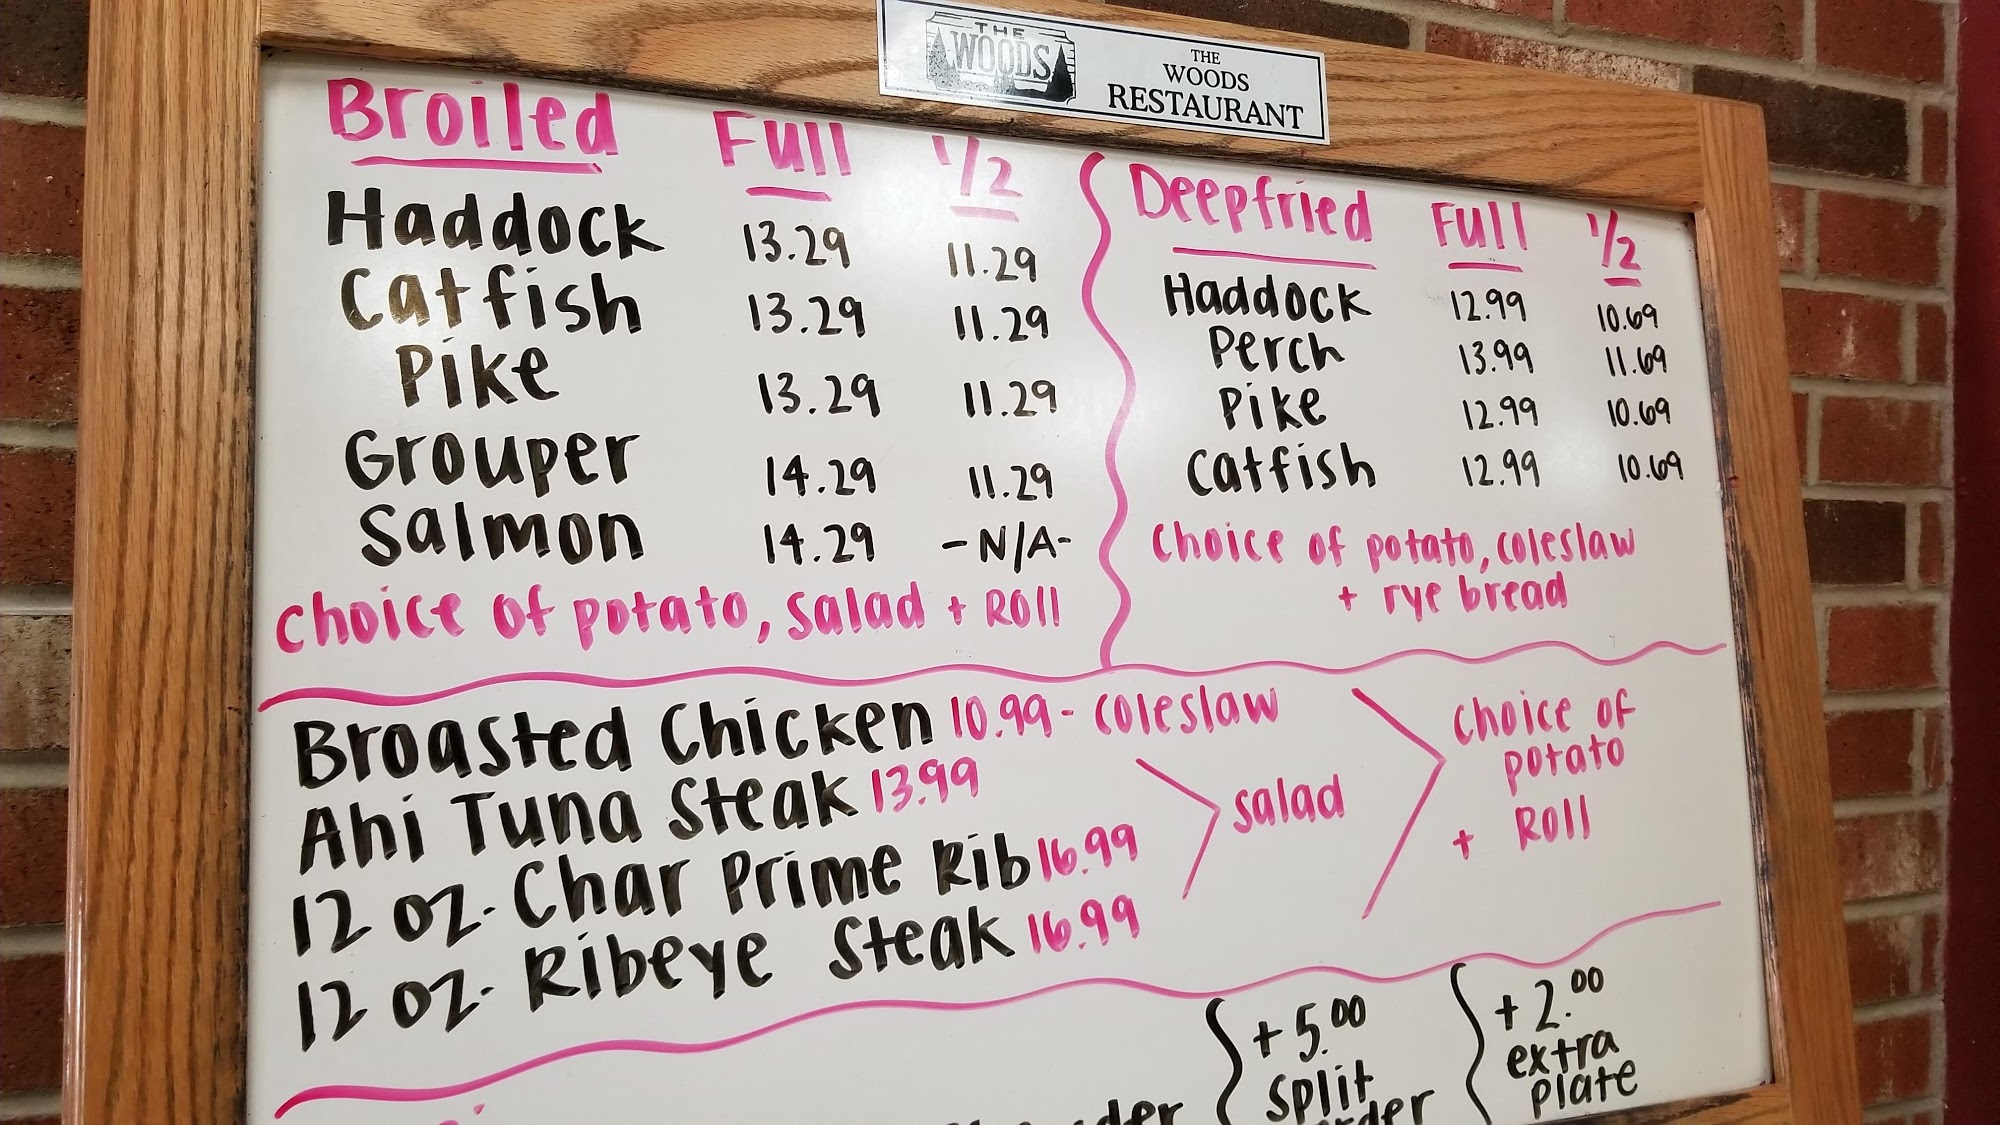 THE
WOODS
THE
WOODS
RESTAURANT
Broiled Full 1/2
Haddock 13.29 11.29
Catfish 13.29 11.29
Pike 13.29 11.29
Grouper 14.29 11.29
Salmon 14.29 -N/A-
choice of potato, salad + Roll
Deepfried Full 1/2
Haddock 12.99 10.69
Perch 13.99 11.69
Pike 12.99 10.69
Catfish 12.99 10.69
choice of potato, coleslaw
+ rye bread
Broasted Chicken 10.99 - coleslaw
Ahi Tuna Steak 13.99
12 oz. Char Prime Rib 16.99
12 oz. Ribeye Steak 16.99
salad
choice of
potato
+ Roll
+ 5.00
split
+ 2.00
extra
plate